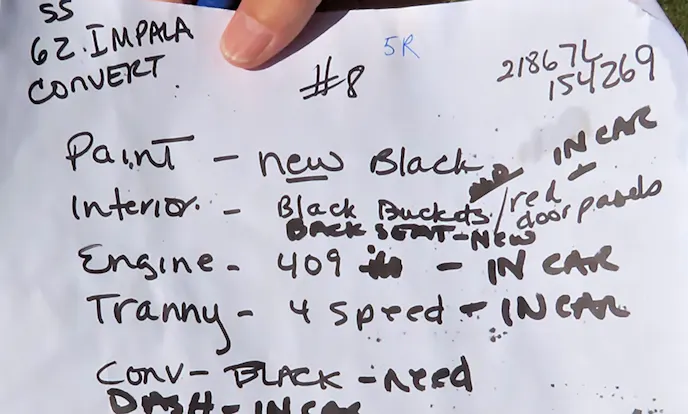 SS
62. IMPALA
CONVERT
#8
5R
21867L
154269
Paint - new Black IN CAR
Interior. - Black Buckets / red door panels
BACK SEAT - New
Engine - 409 - IN CAR
Tranny - 4 Speed - IN CAR
Conv - BLACK - need
DASH - IN CAR